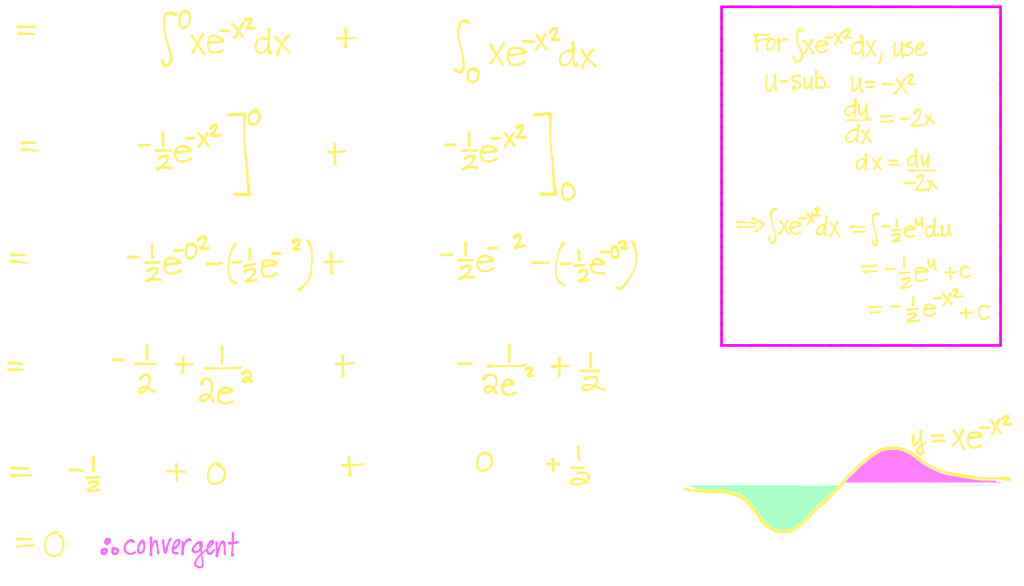 = ∫⁰ xe^{-x²}dx + ∫₀ xe^{-x²}dx
= -1/2 e^{-x²}]⁰ + -1/2 e^{-x²}]₀
= -1/2 e^{-0²} - (-1/2 e^{- ²}) + -1/2 e^{- ²} - (-1/2 e^{-0²})
= -1/2 + 1/2e^{²} + -1/2e^{²} + 1/2
= -1/2 + 0 + 0 + 1/2
= 0 ∴ convergent
For ∫xe^{-x²}dx, use
u-sub. u = -x²
du/dx = -2x
dx = du/-2x
⇒ ∫xe^{-x²}dx = ∫-1/2 e^u du
= -1/2 e^u + c
= -1/2 e^{-x²} + c
y = xe^{-x²}